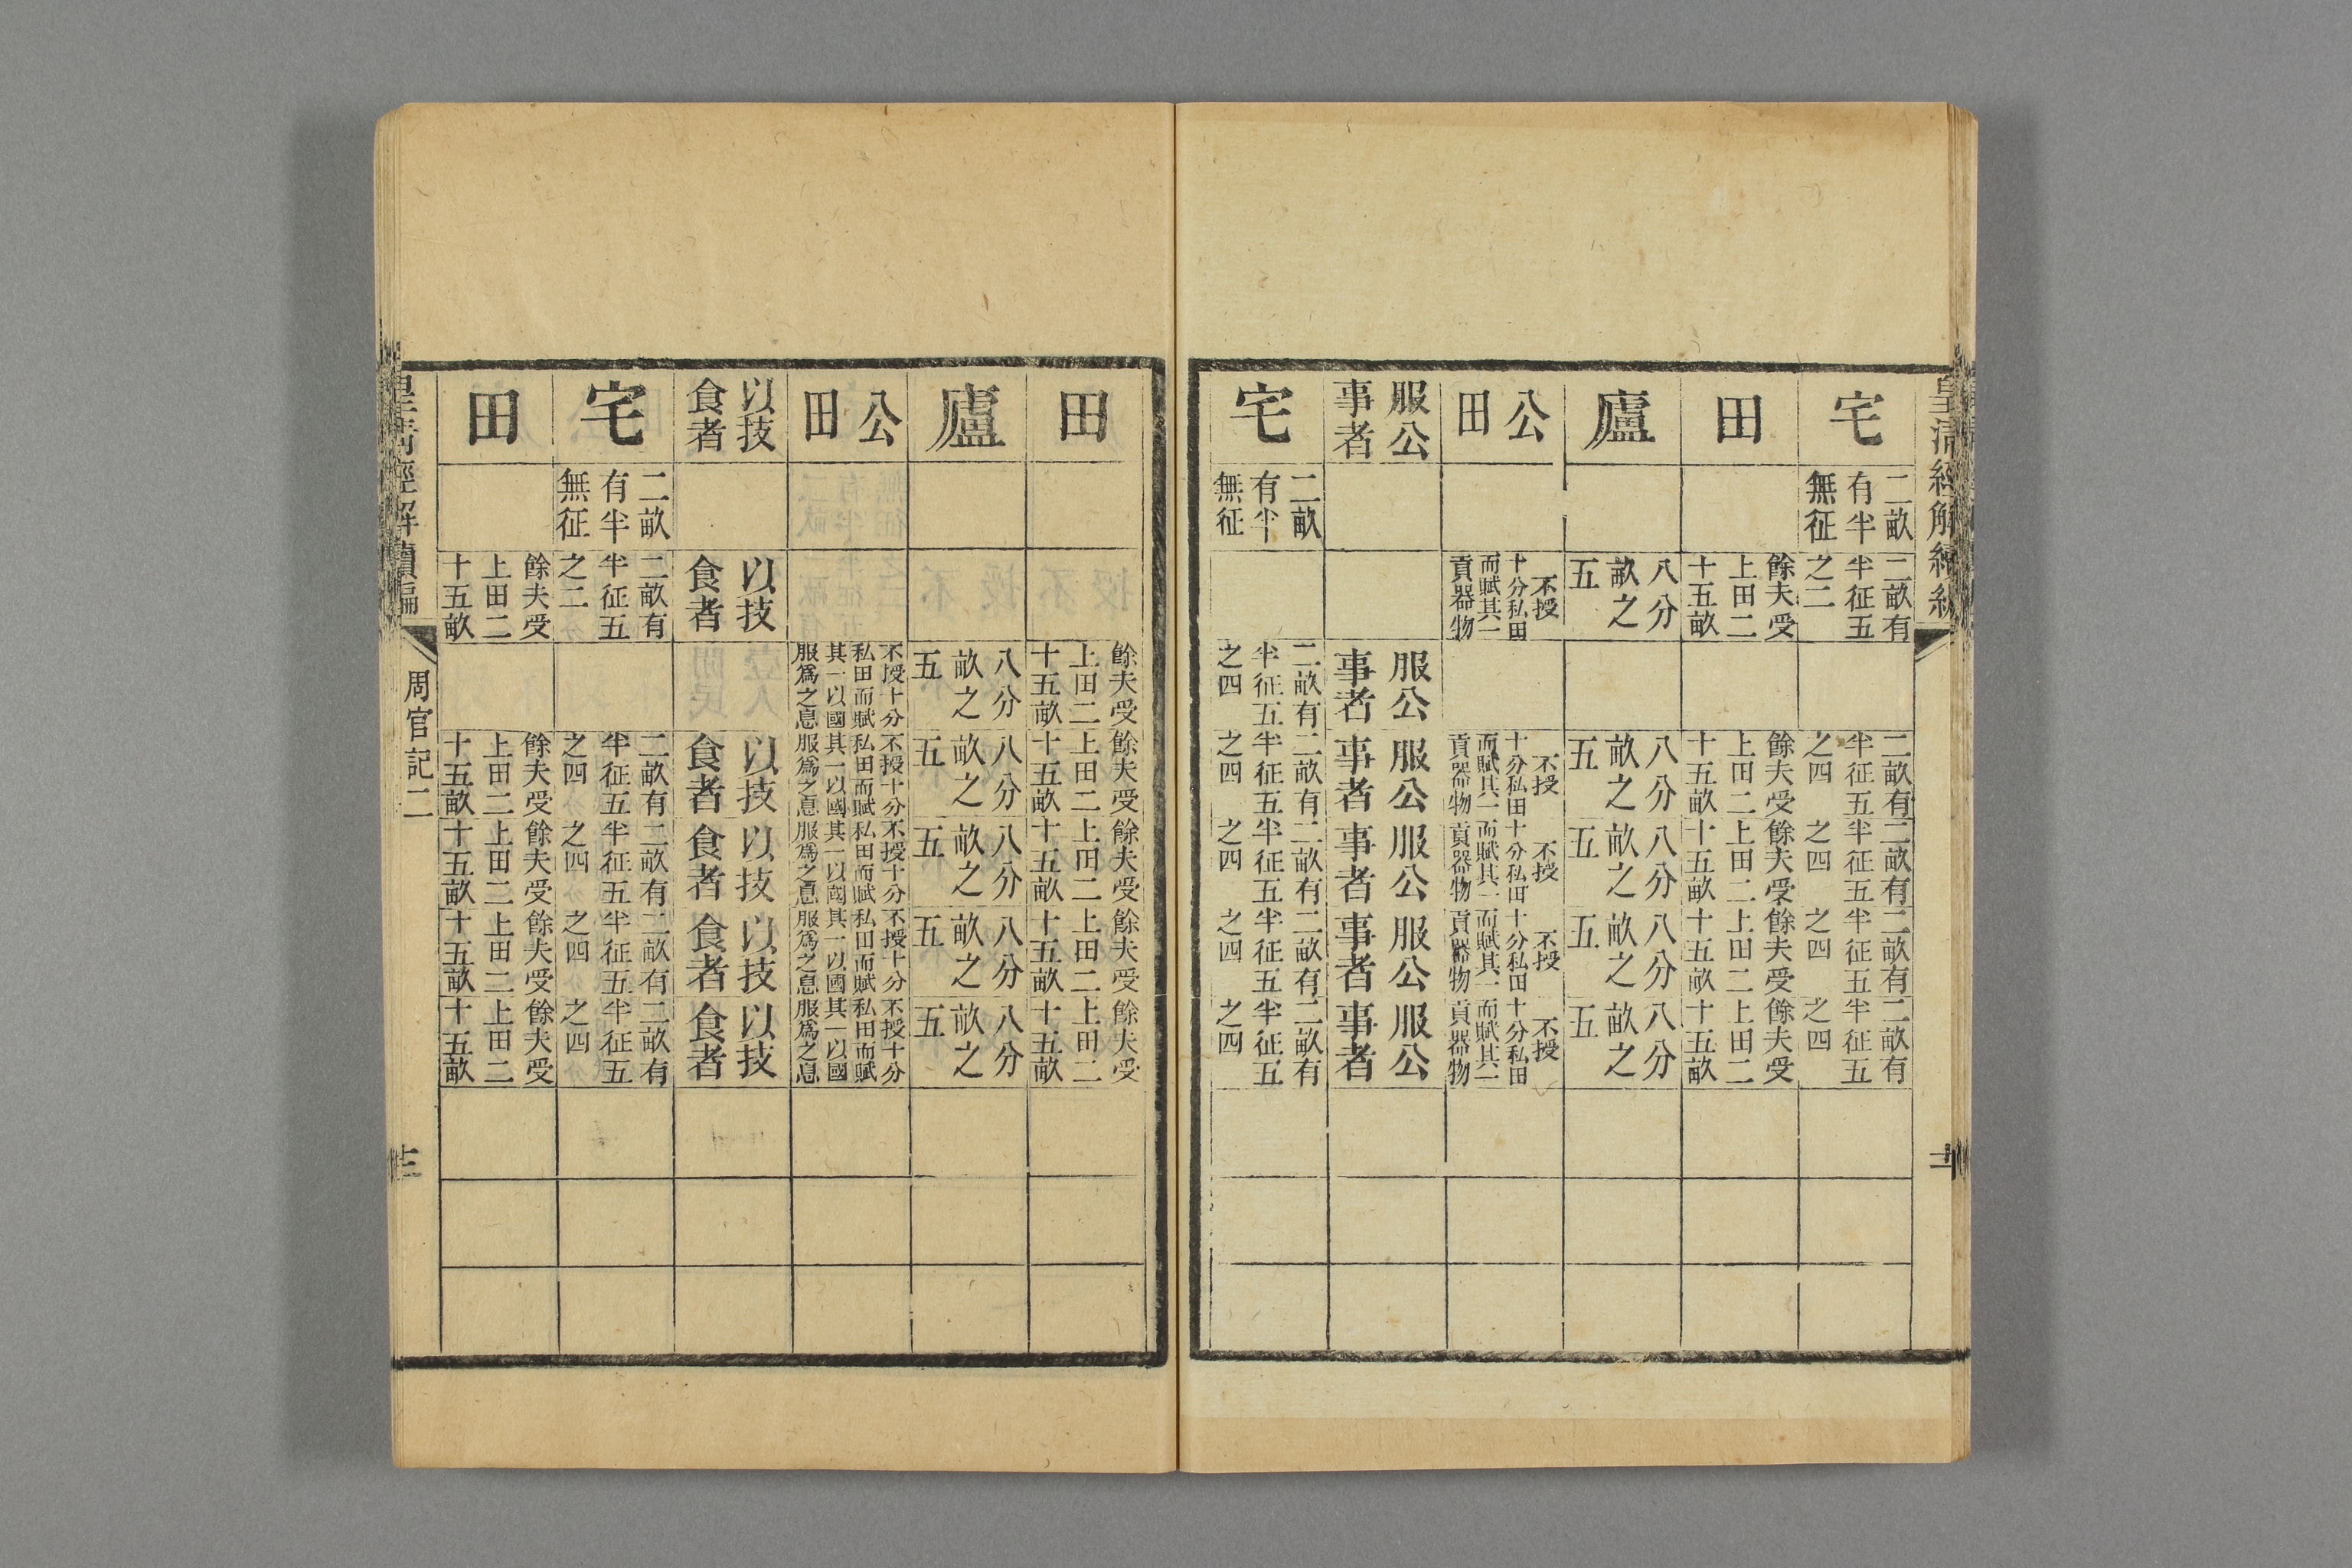 皇清經解續編
宅
二畝
有半
無征
二畝有
半征五
之二
二畝有
半征五
之四
二畝有
半征五
之四
二畝有
半征五
之四
二畝有
半征五
之四
田
餘夫受
上田二
十五畝
餘夫受
上田二
十五畝
餘夫受
上田二
十五畝
餘夫受
上田二
十五畝
餘夫受
上田二
十五畝
廬
八分
畝之
五
八分
畝之
五
八分
畝之
五
八分
畝之
五
八分
畝之
五
公
田
不授
十分私田
而賦其一
貢器物
不授
十分私田
而賦其一
貢器物
不授
十分私田
而賦其一
貢器物
不授
十分私田
而賦其一
貢器物
不授
十分私田
而賦其一
貢器物
服公
事者
服公
事者
服公
事者
服公
事者
服公
事者
服公
事者
宅
二畝
有半
無征
二畝有
半征五
之四
二畝有
半征五
之四
二畝有
半征五
之四
二畝有
半征五
之四
二畝有
半征五
之四
田
餘夫受
上田二
十五畝
餘夫受
上田二
十五畝
餘夫受
上田二
十五畝
餘夫受
上田二
十五畝
餘夫受
上田二
十五畝
廬
八分
畝之
五
八分
畝之
五
八分
畝之
五
八分
畝之
五
八分
畝之
五
公
田
不授十分
私田而賦
其一以國
服爲之息
不授十分
私田而賦
其一以國
服爲之息
不授十分
私田而賦
其一以國
服爲之息
不授十分
私田而賦
其一以國
服爲之息
不授十分
私田而賦
其一以國
服爲之息
以技
食者
以技
食者
以技
食者
以技
食者
以技
食者
以技
食者
宅
二畝
有半
無征
二畝有
半征五
之二
二畝有
半征五
之四
二畝有
半征五
之四
二畝有
半征五
之四
二畝有
半征五
之四
田
餘夫受
上田二
十五畝
餘夫受
上田二
十五畝
餘夫受
上田二
十五畝
餘夫受
上田二
十五畝
餘夫受
上田二
十五畝
皇清經解續編
周官記二